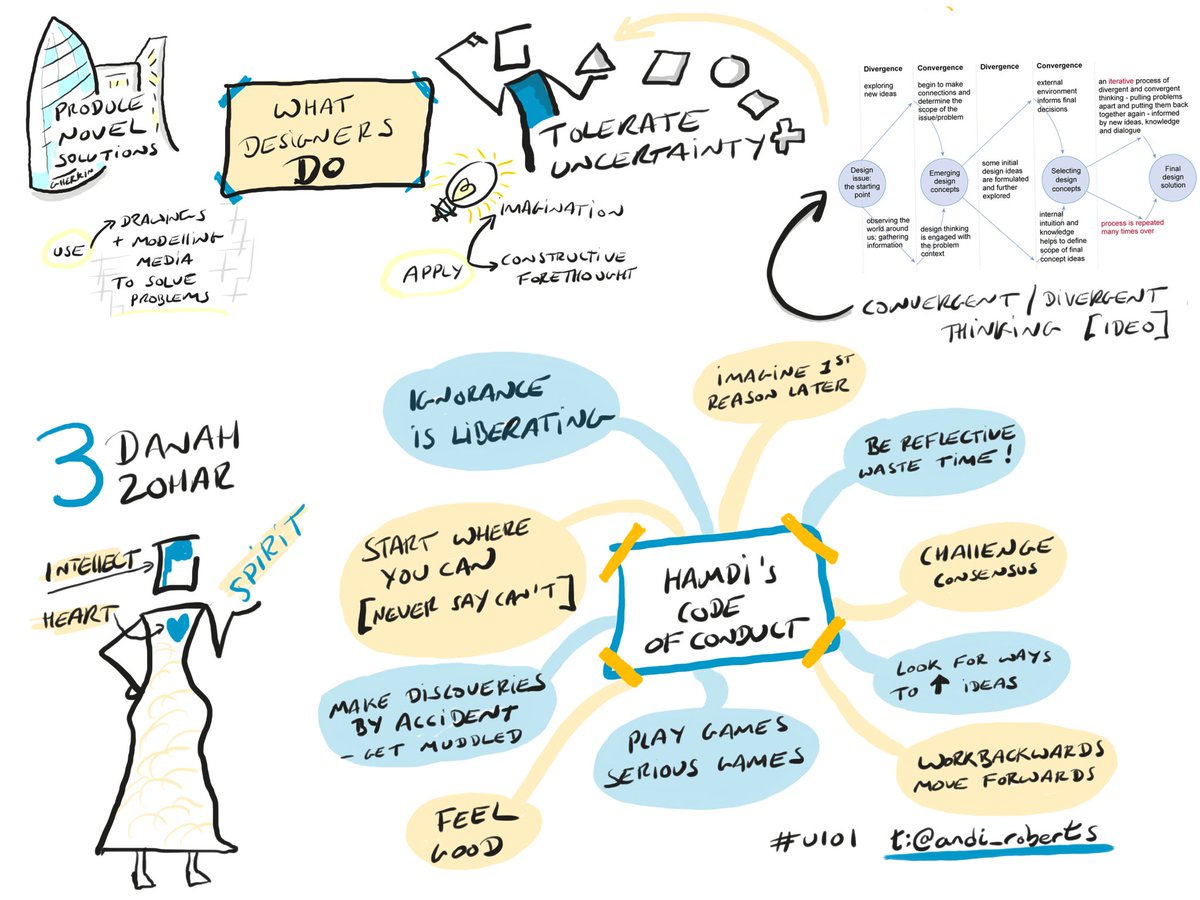 PRODUCE
NOVEL
SOLUTIONS
GHERKIN
WHAT
DESIGNERS
DO
TOLERATE
UNCERTAINTY
USE
DRAWINGS
+ MODELLING
MEDIA
TO SOLVE
PROBLEMS
APPLY
IMAGINATION
CONSTRUCTIVE
FORETHOUGHT
Divergence
Convergence
Divergence
Convergence
exploring
new ideas
begin to make
connections and
determine the
scope of the
issue/problem
external
environment
informs final
decisions
an iterative process of
divergent and convergent
thinking - pulling problems
apart and putting them back
together again - informed
by new ideas, knowledge
and dialogue
Design
issue:
the starting
point
Emerging
design
concepts
some initial
design ideas
are formulated
and further
explored
Selecting
design
concepts
Final
design
solution
observing the
world around
us; gathering
information
design thinking
is engaged with
the problem
context
internal
intuition and
knowledge
helps to define
scope of final
concept ideas
process is repeated
many times over
CONVERGENT / DIVERGENT
THINKING [IDEO]
3 DANAH
ZOHAR
INTELLECT
HEART
SPIRIT
HAMDI'S
CODE
OF CONDUCT
IGNORANCE
IS LIBERATING
IMAGINE 1ST
REASON LATER
BE REFLECTIVE
WASTE TIME!
START WHERE
YOU CAN
[NEVER SAY CAN'T]
CHALLENGE
CONSENSUS
LOOK FOR WAYS
TO ↑ IDEAS
MAKE DISCOVERIES
BY ACCIDENT
- GET MUDDLED
PLAY GAMES
SERIOUS GAMES
WORK BACKWARDS
MOVE FORWARDS
FEEL
GOOD
#U101 t:@andi_roberts